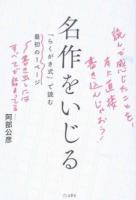 読んで感じたことを、
本に直接
書き込んじゃおう!
名作をいじる
「らくがき式」で読む
最初の1ページ
書き出しには
すべてが詰まってる!
阿部公彦
立東舎